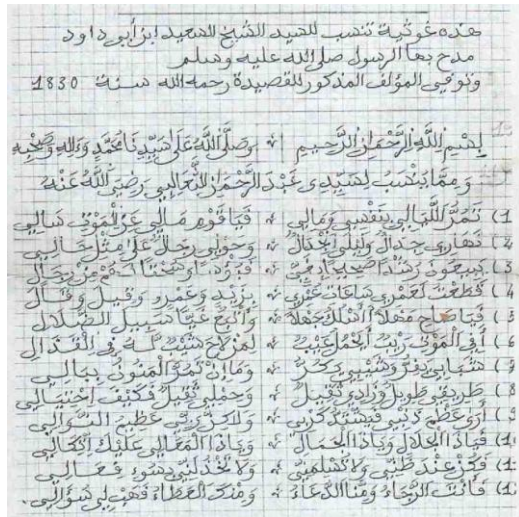 هذه غوثية تنسب للسيد الشيخ السعيد ابن أبي داود
مدح بها الرسول صلى الله عليه وسلم
وتوفي المؤلف المذكور للقصيدة رحمه الله سنة 1830
بسم الله الرحمان الرحيم * وصلى الله على سيدنا محمد وآله وصحبه
ومما ينسب لسيدي عبد الرحمان الثعالبي رضي الله عنه
1) تمر الليالي بنفسي ومالي * فيا قوم مالي عن الموت سالي
2) نهاري جدال وليلي * وحولي رجال على مثل حالي
3) يبيعون رشدا * من رجال
4) قطعت لعمري ساعات عمري * بزيد وعمرو وقيل وقال
5) فيا صاح مهلا أتسلك جهلا * وأتبع غيا سبيل الضلال
6) أفي الموت ريب * لمن لاح شيب له في القذال
7) شبابي يفر وشيبي يكر * وما إن تمر المنون ببالي
8) طريقي طويل وزادي * وحملي ثقيل فكيف احتيالي
9) أرى عظم ذنبي فيشتد كربي * ولاكن ربي عظيم النوالي
10) فياذا الجلال وياذا الجمال * وياذا المعالي عليك اتكالي
11) فكن عند ظني ولا تسلمني * ولا تخذلني بسوء فعالي
12) فأنت الرجاء ومنا الدعاء * ومنك العطاء فهب لي سؤالي